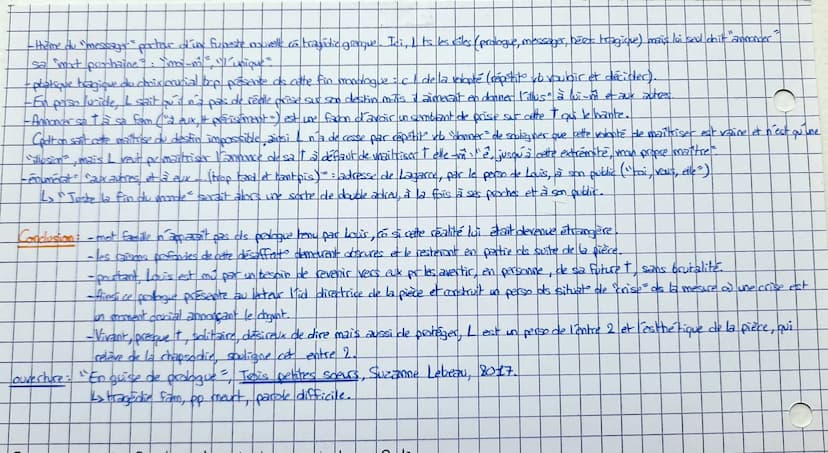 -thème du "messager" porteur d'une funeste nouvelle cô tragédie grecque. Ici, L ts les rôles (prologue, messager, héros tragique) mais lui seul doit "annoncer"
sa "mort prochaine" : "moi-mê", "l'unique"
-pratique tragique du choix crucial tjrs présente ds cette fin monologue : c l de la volonté (répétit° vb vouloir et décider).
-En perso lucide, L sait qu'il n'a pas de réelle prise sur son destin mais il aimerait en donner l'"illus°" à lui-m̂ et aux autres
-Annoncer sa † à sa fam ("à eux, tt précisément") est une façon d'avoir un semblant de prise sur cette † qui le hante.
Cpdt on sait cette maîtrise du destin impossible, ainsi L n'a de cesse par répétit° vb "donner" de souligner que cette volonté de maîtriser est vaine et n'est qu'une
"illusion", mais L veut pe maîtriser l'annonce de sa † à défaut de maîtriser † elle-m̂ : "ê, jusqu'à cette extrémité, mon propre maître".
-énumérat° "aux autres et à eux (trop tard et tant pis)" : adresse de Lagarce, par le perso de Louis, à son public ("toi, vous, elle")
↳ "Juste la fin du monde" serait alors une sorte de double adieu, à la fois à ses proches et à son public.
Conclusion : -mot famille n'apparaît pas ds prologue tenu par Louis, cô si cette réalité lui était devenue étrangère.
-les raisons profondes de cette désaffect° demeurent obscures et le resteront en partie ds suite de la pièce.
-pourtant, Louis est mû par un besoin de revenir vers eux pr les avertir, en personne, de sa future †, sans brutalité.
-Ainsi ce prologue présente au lecteur l'id directrice de la pièce et construit un perso ds situat° de "crise" ds la mesure où une crise est
un moment crucial annonçant le chgmt.
-Vivant, presque †, solitaire, désireux de dire mais aussi de protéger, L est un perso de l'entre 2 et l'esthétique de la pièce, qui
relève de la rhapsodie, souligne cet entre 2.
ouverture : "En guise de prologue", Trois petites sœurs, Suzanne Lebeau, 2017.
↳ tragédie fam, pp meurt, parole difficile.